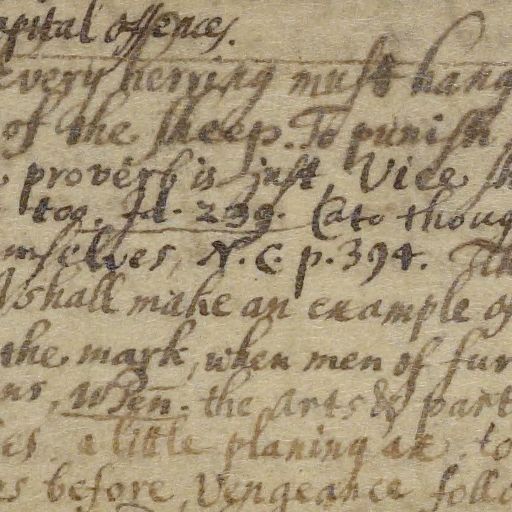 apital offences.
every herring must hang
of the sheep. To punish
proverb is just Vice sh
too. Id. 299. Cato thoug
mselves, N. C. p. 394. Till
shall make an example of
the mark, when men of fur
ns, When. the Arts & part
ies. a little planing ax. to
os before, Vengeance follo